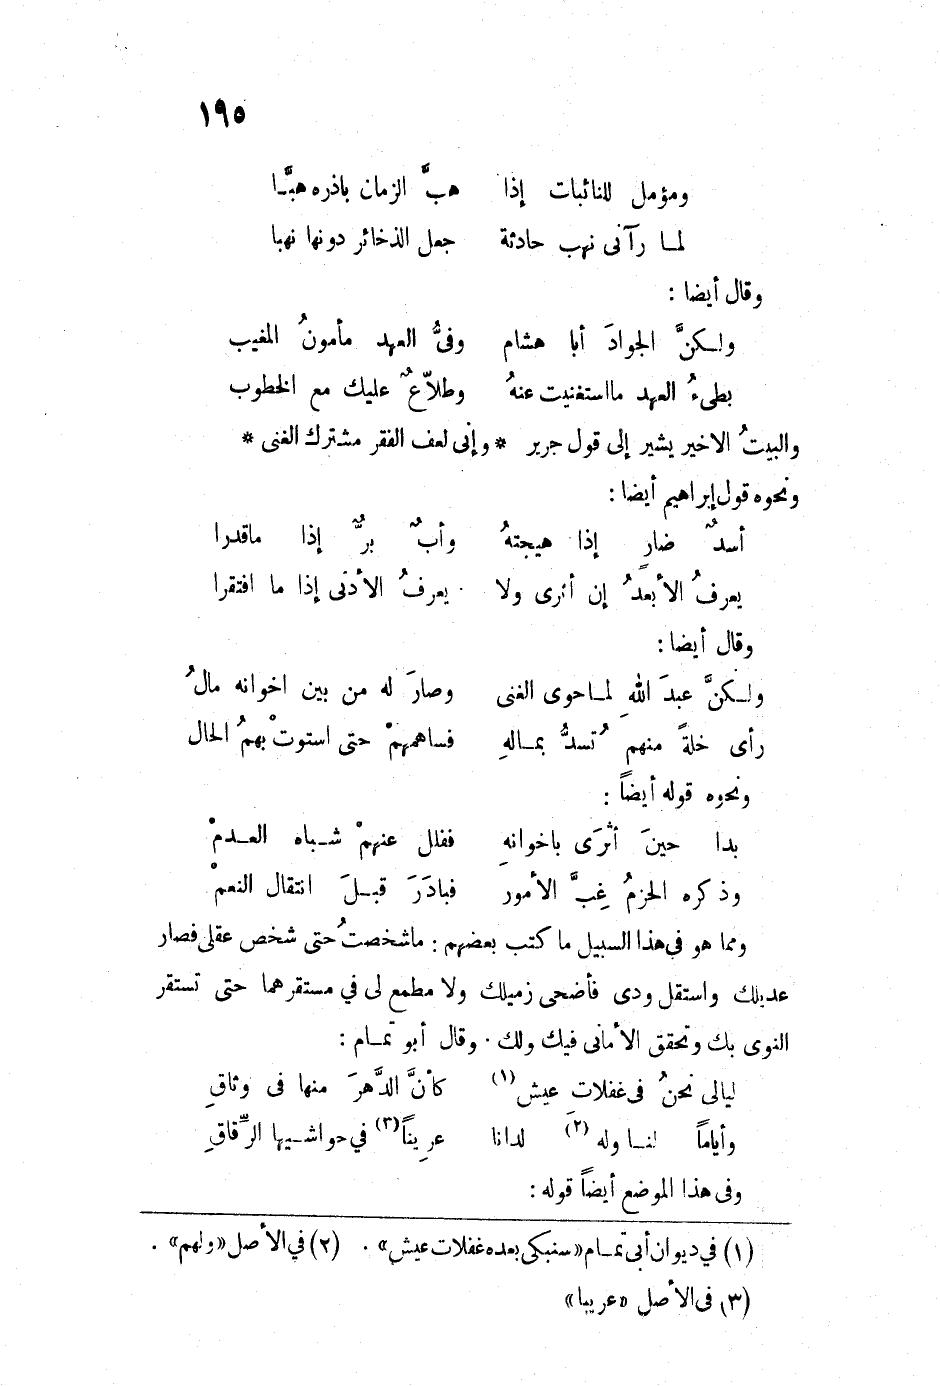 ١٩٥
ومؤمل للنائبات إذا هبَّ الزمان باذره هبَّـا
لمـا رآنى نهب حادثة جعل الذخائر دونها نهبا
وقال أيضا :
ولـكنَّ الجوادَ أبا هشام وفىُّ العهد مأمونُ المغيب
بطىءُ العهد مااستغنيت عنهُ وطلاّعٌ عليك مع الخطوب
والبيتُ الاخير يشير إلى قول جرير * وإنى لعف الفقر مشترك الغنى *
ونحوه قول إبراهيم أيضا :
أسدٌ ضارٍ إذا هيجتهُ وأبٌ برٌّ إذا ماقدرا
يعرفُ الأبعدُ إن أثرى ولا يعرفُ الأدنى إذا ما افتقرا
وقال أيضا :
ولـكنَّ عبدَ اللهِ لمـاحوى الغنى وصارَ له من بين اخوانه مالُ
رأى خلةً منهم ُتسدُّ بمـالهِ فساهمهمْ حتى استوتْ بهمُ الحال
ونحوه قوله أيضاً :
بدا حينَ أثرَى باخوانهِ ففلل عنهمْ شـباه العـدمْ
وذكره الحزمُ غِبَّ الأمور فبادَرَ قبـلَ انتقال النعمْ
ومما هو فى هذا السبيل ما كتب بعضهم : ماشخصتُ حتى شخص عقلى فصار
عديلك واستقل ودى فأضحى زميلك ولا مطمع لى في مستقرهما حتى تستقر
النوى بك وتحقق الأمانى فيك ولك . وقال أبو تمـام :
ليالى نحنُ فى غفلاتِ عيش(١) كأنَّ الدَّهرَ منها فى وثاقِ
وأياماً لنـا وله (٢) لدانا عرِيناً(٣) في حواشـيها الرِّقاقِ
وفى هذا الموضع أيضاً قوله :
(١) في ديوان أبى تمـام «سنبكى بعده غفلات عيش» . (٢) في الأصل «ولهم» .
(٣) فى الأصل «عريبا»